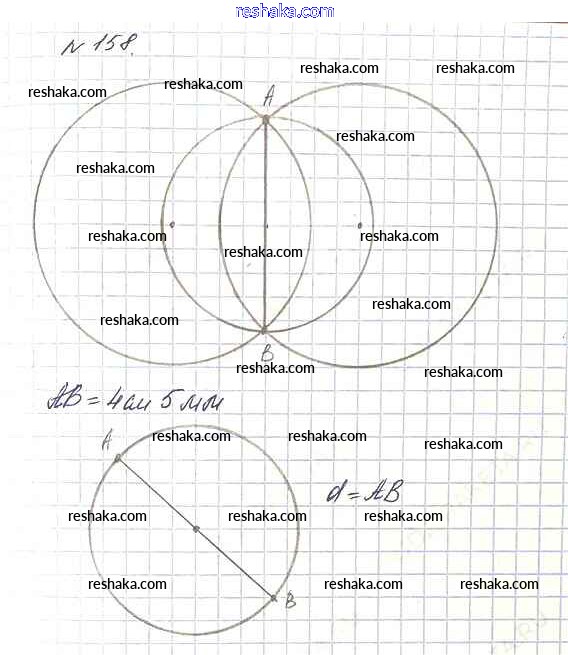 reshaka.com
№ 158.
reshaka.com reshaka.com
reshaka.com reshaka.com
A
reshaka.com
reshaka.com
reshaka.com reshaka.com
reshaka.com
reshaka.com
reshaka.com
B
reshaka.com
reshaka.com
AB = 4 см 5 мм
A reshaka.com reshaka.com reshaka.com
d = AB
reshaka.com reshaka.com reshaka.com
reshaka.com B reshaka.com reshaka.com